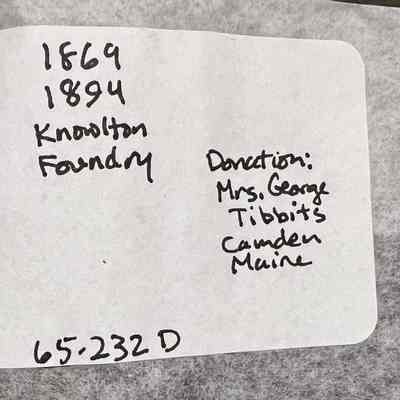 1869
1894
Knowlton
Foundry
Donation:
Mrs. George
Tibbits
Camden
Maine
65-232 D